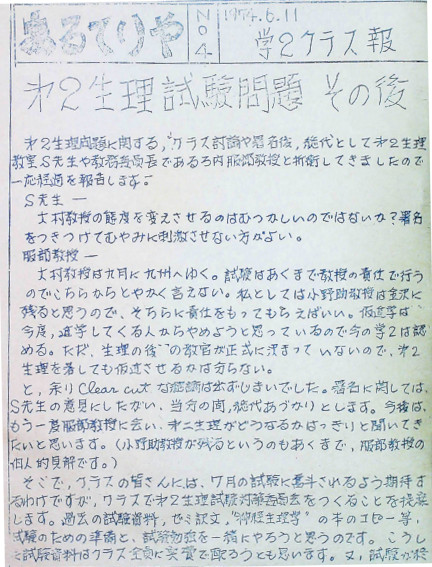 あるてりや
No4
1974.6.11
学2クラス報
才2生理試験問題 その後
才2生理問題に関する,クラス討論や署名後,総代として才2生理
教室S先生や教務委員長であるろ内服部教授と折衝してきましたので
一応経過を報告します。
S先生 ―
大村教授の態度を変えさせるのはむつかしいのではないか?署名
をつきつけてむやみに刺激させない方がよい。
服部教授 ―
大村教授は九月に九州へゆく。試験はあくまで教授の責任で行う
のでこちらからとやかく言えない。私としては小野助教授は金沢に
残ると思うので、そちらに責任をもってもらえばいい。仮進学は
今度,進学してくる人からやめようと思っているので今の学2は認
める。ただ、生理の後の教官が正式に決まって いないので、才2
生理を落しても仮進させるかは分らない。
と,余り Clear cut な結論は出ずじまいでした。署名に関しては、
S先生の意見にしたがい、当分の間,総代あづかりとします。今後は、
もう一度服部教授に会い、才二生理がどうなるかはっきりと聞いてき
たいと思います。(小野助教授が残るというのもあくまで,服部教授の
個人的見解です。)
そこで,クラスの皆さんには、7月の試験に基斗されるよう期待す
るわけですが,クラスで才2生理試験対策委員会をつくることを提案
します。過去の試験資料,ゼミ訳文,"神経生理学"の本のコピー等,
試験のための準備と、試験勉強を一緒にやろうと思うのです。こうし
た試験資料はクラス全員に実費で配ろうとも思います。又,試験が終